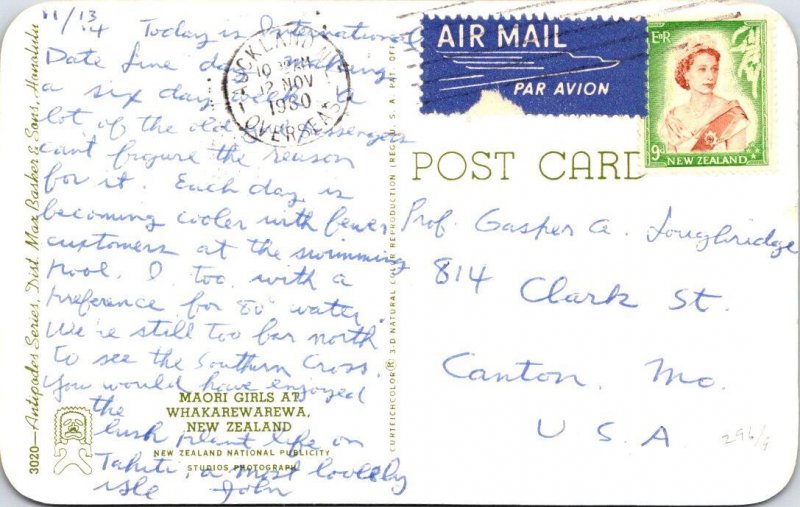 11/13
14 Today is International
Date line day making
a six day week. A
lot of the old passengers
can't frigure the reason
for it. Each day is
becoming cooler with fewer
customers at the swimming
pool. I, too, with a
preference for 80° water.
We're still too far north
to see the Southern Cross.
You would have enjoyed
the
lush plant life on
Tahiti, a most lovely
isle John
AUCKLAND
NOV
OVERSEAS
AIR MAIL
PAR AVION
E R
9d NEW ZEALAND
POST CARD
Prof. Gasper A. Loughridge
814
Clark St.
Canton, Mo.
U.S.A.
296/9
MAORI GIRLS AT
WHAKAREWAREWA,
NEW ZEALAND
NEW ZEALAND NATIONAL PUBLICITY
STUDIOS PHOTOGRAPH
3020—Antipodes Series, Dist. Max Basker & Sons, Honolulu
CURTEICHCOLOR® 3-D NATURAL COLOR REPRODUCTION (REG. U.S.A. PAT. OFF.)